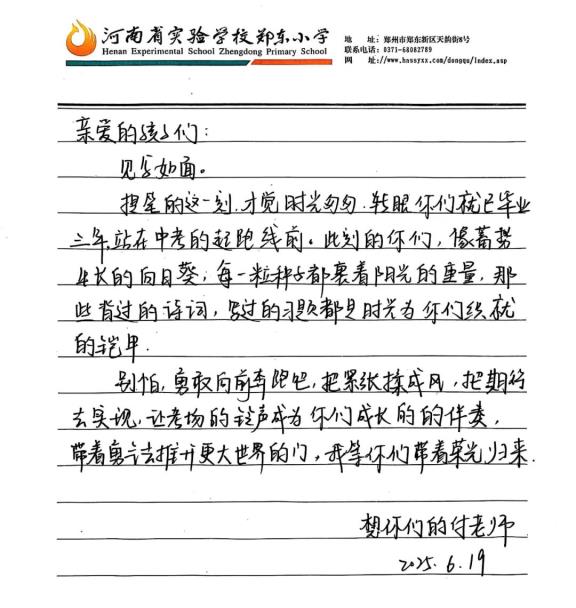 河南省实验学校郑东小学
Henan Experimental School Zhengdong Primary School
地 址：郑州市郑东新区天韵街8号
联系电话：0371-68082789
网 址：//www.hnssyxx.com/dongqu/index.asp
亲爱的孩子们：
见字如面。
提笔的这一刻，才觉时光匆匆，转眼你们就已毕业
三年站在中考的起跑线前。此刻的你们，像蓄势
生长的向日葵，每一粒种子都裹着阳光的重量，那
些背过的诗词，写过的习题都是时光为你们织就
的铠甲．
别怕，勇敢向前奔跑吧，把紧张揉成风，把期待
去实现，让考场的铃声成为你们成长的的伴奏，
带着勇气去推开更大世界的门，我等你们带着荣光归来．
想你们的付老师
2025.6.19